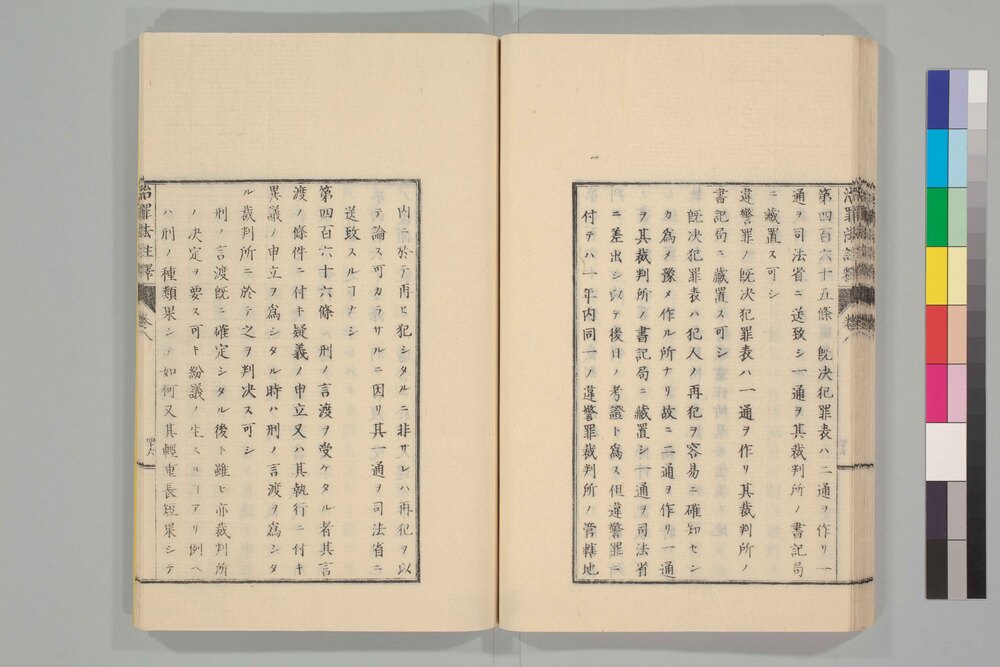 第四百六十五條　旣决犯罪表ハ二通ヲ作リ一
通ヲ司法省ニ送致シ一通ヲ其裁判所ノ書記局
ニ藏置ス可シ
違警罪ノ旣决犯罪表ハ一通ヲ作リ其裁判所ノ
書記局ニ藏置ス可シ
旣决犯罪表ハ犯人ノ再犯ヲ容易ニ確知セン
カ爲メ豫メ作ル所ナリ故ニ二通ヲ作リ一通
ヲ其裁判所ノ書記局ニ藏置シ一通ヲ司法省
ニ差出シ以テ後日ノ考證ト爲ス但違警罪ニ
付テハ一年内同一ノ違警罪裁判所ノ管轄地
内ニ於テ再ヒ犯シタルニ非サレハ再犯ヲ以
テ論ス可カラサルニ因リ其一通ヲ司法省ニ
送致スルヿナシ
第四百六十六條　刑ノ言渡ヲ受ケタル者其言
渡ノ條件ニ付キ疑義ノ申立又ハ其執行ニ付キ
異議ノ申立ヲ爲シタル時ハ刑ノ言渡ヲ爲シタ
ル裁判所ニ於テ之ヲ判决ス可シ
刑ノ言渡旣ニ確定シタル後ト雖モ亦裁判所
ノ决定ヲ要ス可キ紛議ノ生スルヿアリ例ヘ
ハ刑ノ種類果シテ如何又其輕重長短果シテ
治罪法註釋
卷八